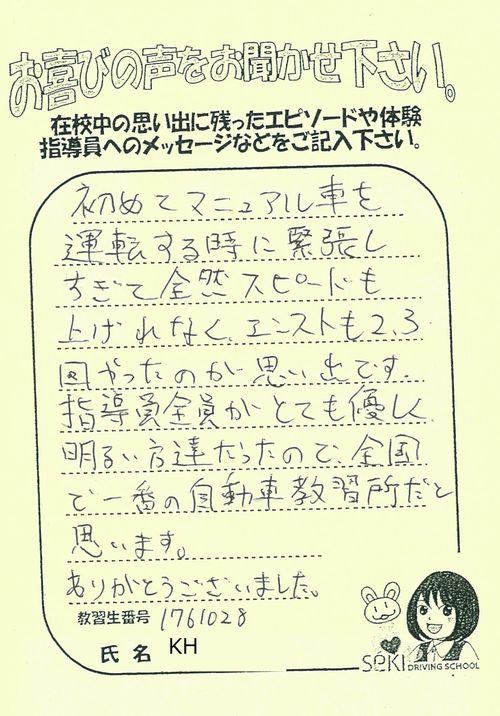 お喜びの声をお聞かせ下さい。
在校中の思い出に残ったエピソードや体験
指導員へのメッセージなどをご記入下さい。
初めてマニュアル車を
運転する時に緊張し
すぎて全然スピードも
上げれなく、エンストも2、3
回やったのが思い出です。
指導員全員がとても優しく
明るい方達だったので、全国
で一番の自動車教習所だと
思います。
ありがとうございました。
教習生番号 1761028
氏名 KH
SEKI DRIVING SCHOOL